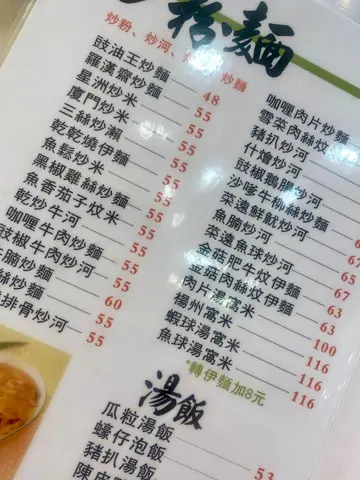 粉麵
炒粉、炒河、
炒麵
豉油王炒麵 48
羅漢齋炒麵 55
星洲炒米 55
廈門炒米 55
三絲炒瀨 55
乾乾燒伊麵 55
魚鬆炒米 55
黑椒雞絲炒麵 55
魚香茄子炆米 55
乾炒牛河 55
咖喱牛肉炒麵 55
豉椒牛肉炒河 55
腩炒麵 60
絲炒麵 55
排骨炒河 55
咖喱肉片炒麵
雪菜肉絲炆
豬扒炒河
什燴炒河
豉椒鵝腸炒河
沙嗲牛柳絲炒麵
菜遠鮮魷炒河
魚腩炒河
菜遠魚球炒河
金菇肥牛炆伊麵 67
金菇肉絲炆伊麵 63
肉片湯窩米 63
楊州窩米 100
蝦球湯窩米 116
魚球湯窩米 116
轉伊麵加8元
湯飯
瓜粒湯飯 53
蠔仔泡飯
豬扒湯飯
陳皮